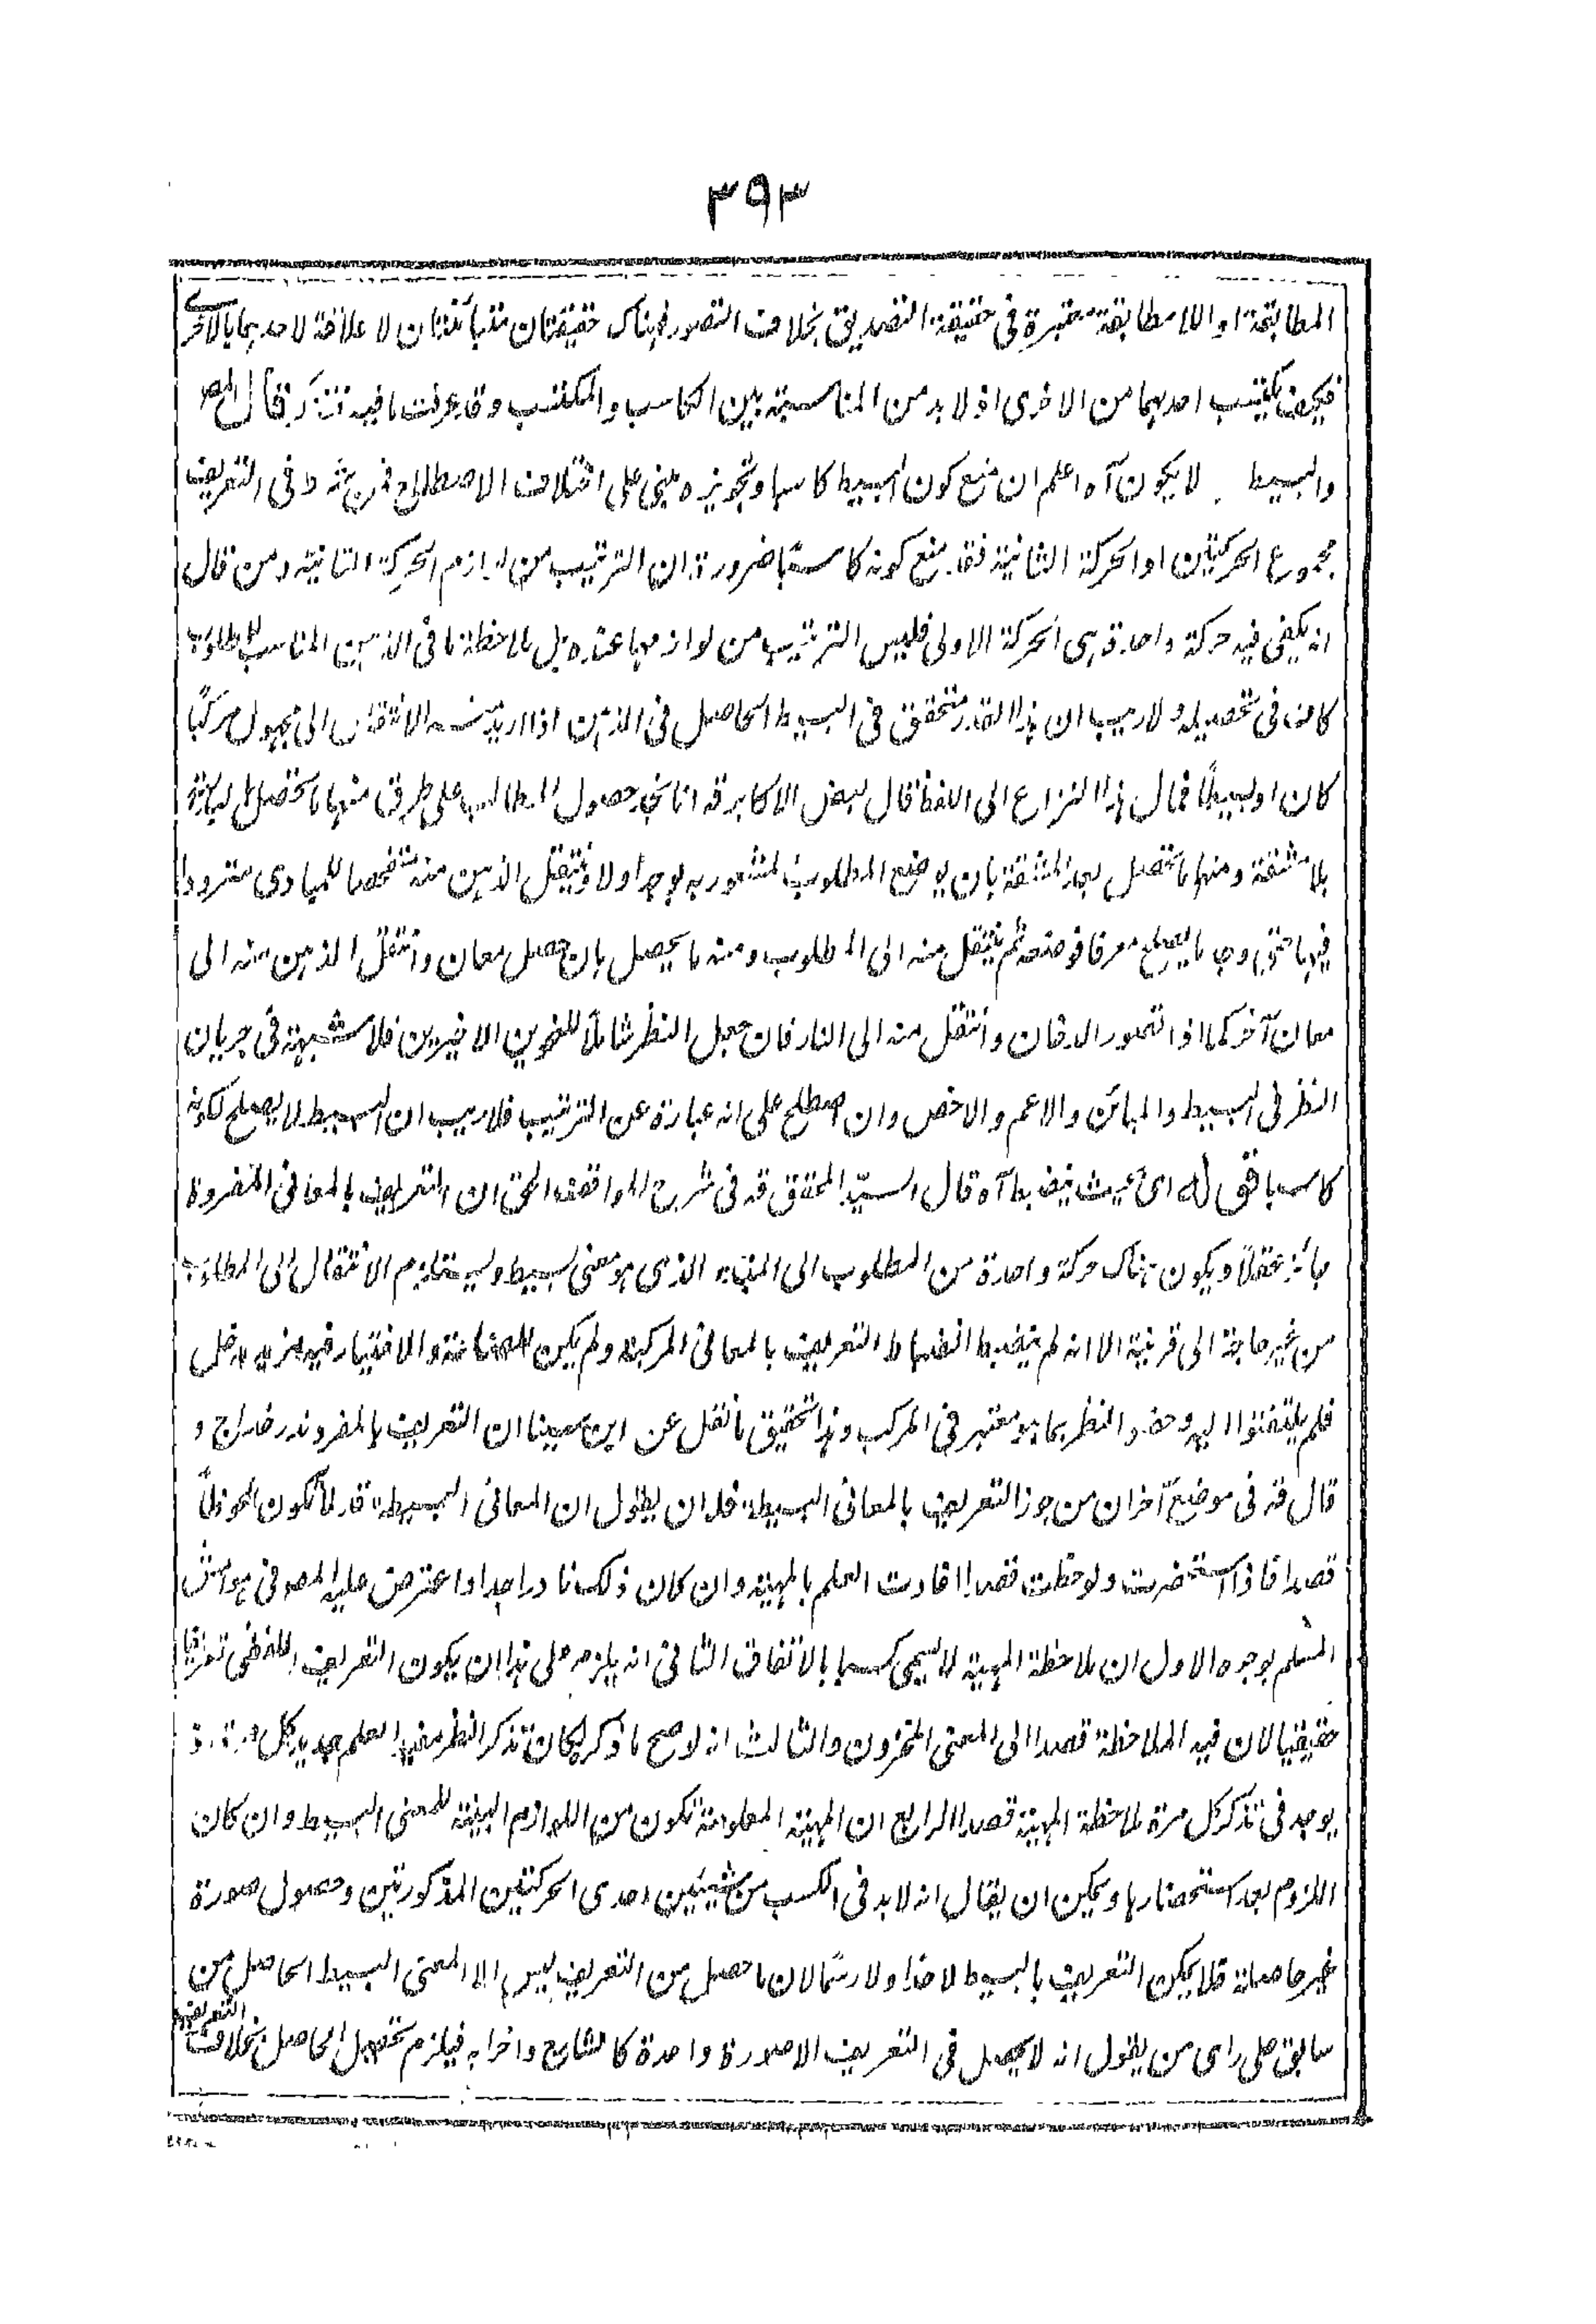 ٣٩٣
المطابقة او اللامطابقة معتبرة فى حقيقة التصديق بخلاف التصور فهناك حقيقتان متبائنتان لا علاقة لاحدىهما بالاخرى
فكيف يكتسب احدىهما من الاخرى اذ لا بد من المناسبة بين الكاسب والمكتسب وقد عرفت ما فيه فتذكر قال المص
والبسيط لا يكون آه اعلم ان منع كون البسيط كاسبا وتجويزه مبنى على اختلاف الاصطلاح فمن شرط فى التعريف
مجموع الحركتين او الحركة الثانية فقد منع كونه كاسبًا ضرورة ان الترتيب من لوازم الحركة الثانية ومن قال
انه يكفى فيه حركة واحدة هى الحركة الاولى فليس الترتيب من لوازمها عنده بل ملاحظة ما فى الذهن المناسب للمطلوب
كاف فى تحصيله ولا ريب ان هذا القدر متحقق فى البسيط الحاصل فى الذهن اذا اريد منه الانتقال الى مجهول مركبًا
كان او بسيطًا فمال هذا النزاع الى اللفظ قال بعض الاكابر قد انا نجد حصول المطالب على طرق منها ما تحصل
بلا مشقة ومنها ما تحصل بعد المشقة بان يوضع المطلوب المشعور به بوجه اولا فينتقل الذهن منه متفحصا للمبادى مترددا
فيها حتى وجد ما يصلح معرفا فوضعه ثم ينتقل منه الى المطلوب ومنه ما يحصل بان حصل معان وانتقل الذهن منه الى
معان آخر كما اذا تصور الدخان وانتقل منه الى النار فان جعل النظر شاملًا للنحوين الاخيرين فلا شبهة فى جريان
النظر فى البسيط والمبائن والاعم والاخص وان اصطلح على انه عبارة عن الترتيب فلا ريب ان البسيط لا يصلح لكونه
كاسبا قوله اى حيث ينضبط آه قال السيد المحقق قد فى شرح المواقف الحق ان التعريف بالمعانى المفردة
جائز عقلًا ويكون هناك حركة واحدة من المطلوب الى المبدء الذى هو معنى بسيط ويستلزم الانتقال الى المطلوب
من غير حاجة الى قرينة الا انه لم ينضبط انضباط التعريف بالمعانى المركبة ولم يكن للصناعة والاختيار فيه مزيد مدخل
فلم يلتفتوا اليه وخصوا النظر بما هو معتبر فى المركب وهذا تحقيق ما نقل عن ابن سينا ان التعريف بالمفرد نزر خداج و
قال قد فى موضع آخر ان من جوز التعريف بالمعانى البسيطة فله ان يقول ان المعانى البسيطة قد لا تكون ملحوظةً
قصدا فاذا استحضرت ولوحظت قصدا افادت العلم بالمهية وان كان ذلك نادرا جدا واعترض عليه المص فى هوامش
المسلم بوجوه الاول ان ملاحظة المهية لا يسمى كسبا بالاتفاق الثانى انه يلزم على هذا ان يكون التعريف اللفظى تعريفا
حقيقيا لان فيه الملاحظة قصدا الى المعنى المخزون والثالث انه لو صح ما ذكر لكان تذكر النظر مفيد العلم جديد كل مرة اذ
يوجد فى تذكر كل مرة ملاحظة المهية قصدا الرابع ان المهية المعلومة تكون من اللوازم البينة للمعنى البسيط وان كان
اللزوم بعد استحضارها ويمكن ان يقال انه لا بد فى الكسب من شيئين احدى الحركتين المذكورتين وحصول صورة
غير حاصلة فلا يمكن التعريف بالبسيط لا حدا ولا رسمًا لان ما حصل من التعريف ليس الا المعنى البسيط الحاصل من
سابق على راى من يقول انه لا يحصل فى التعريف الا صورة واحدة كالشارح واحزابه فيلزم تحصيل الحاصل بخلاف التعريف